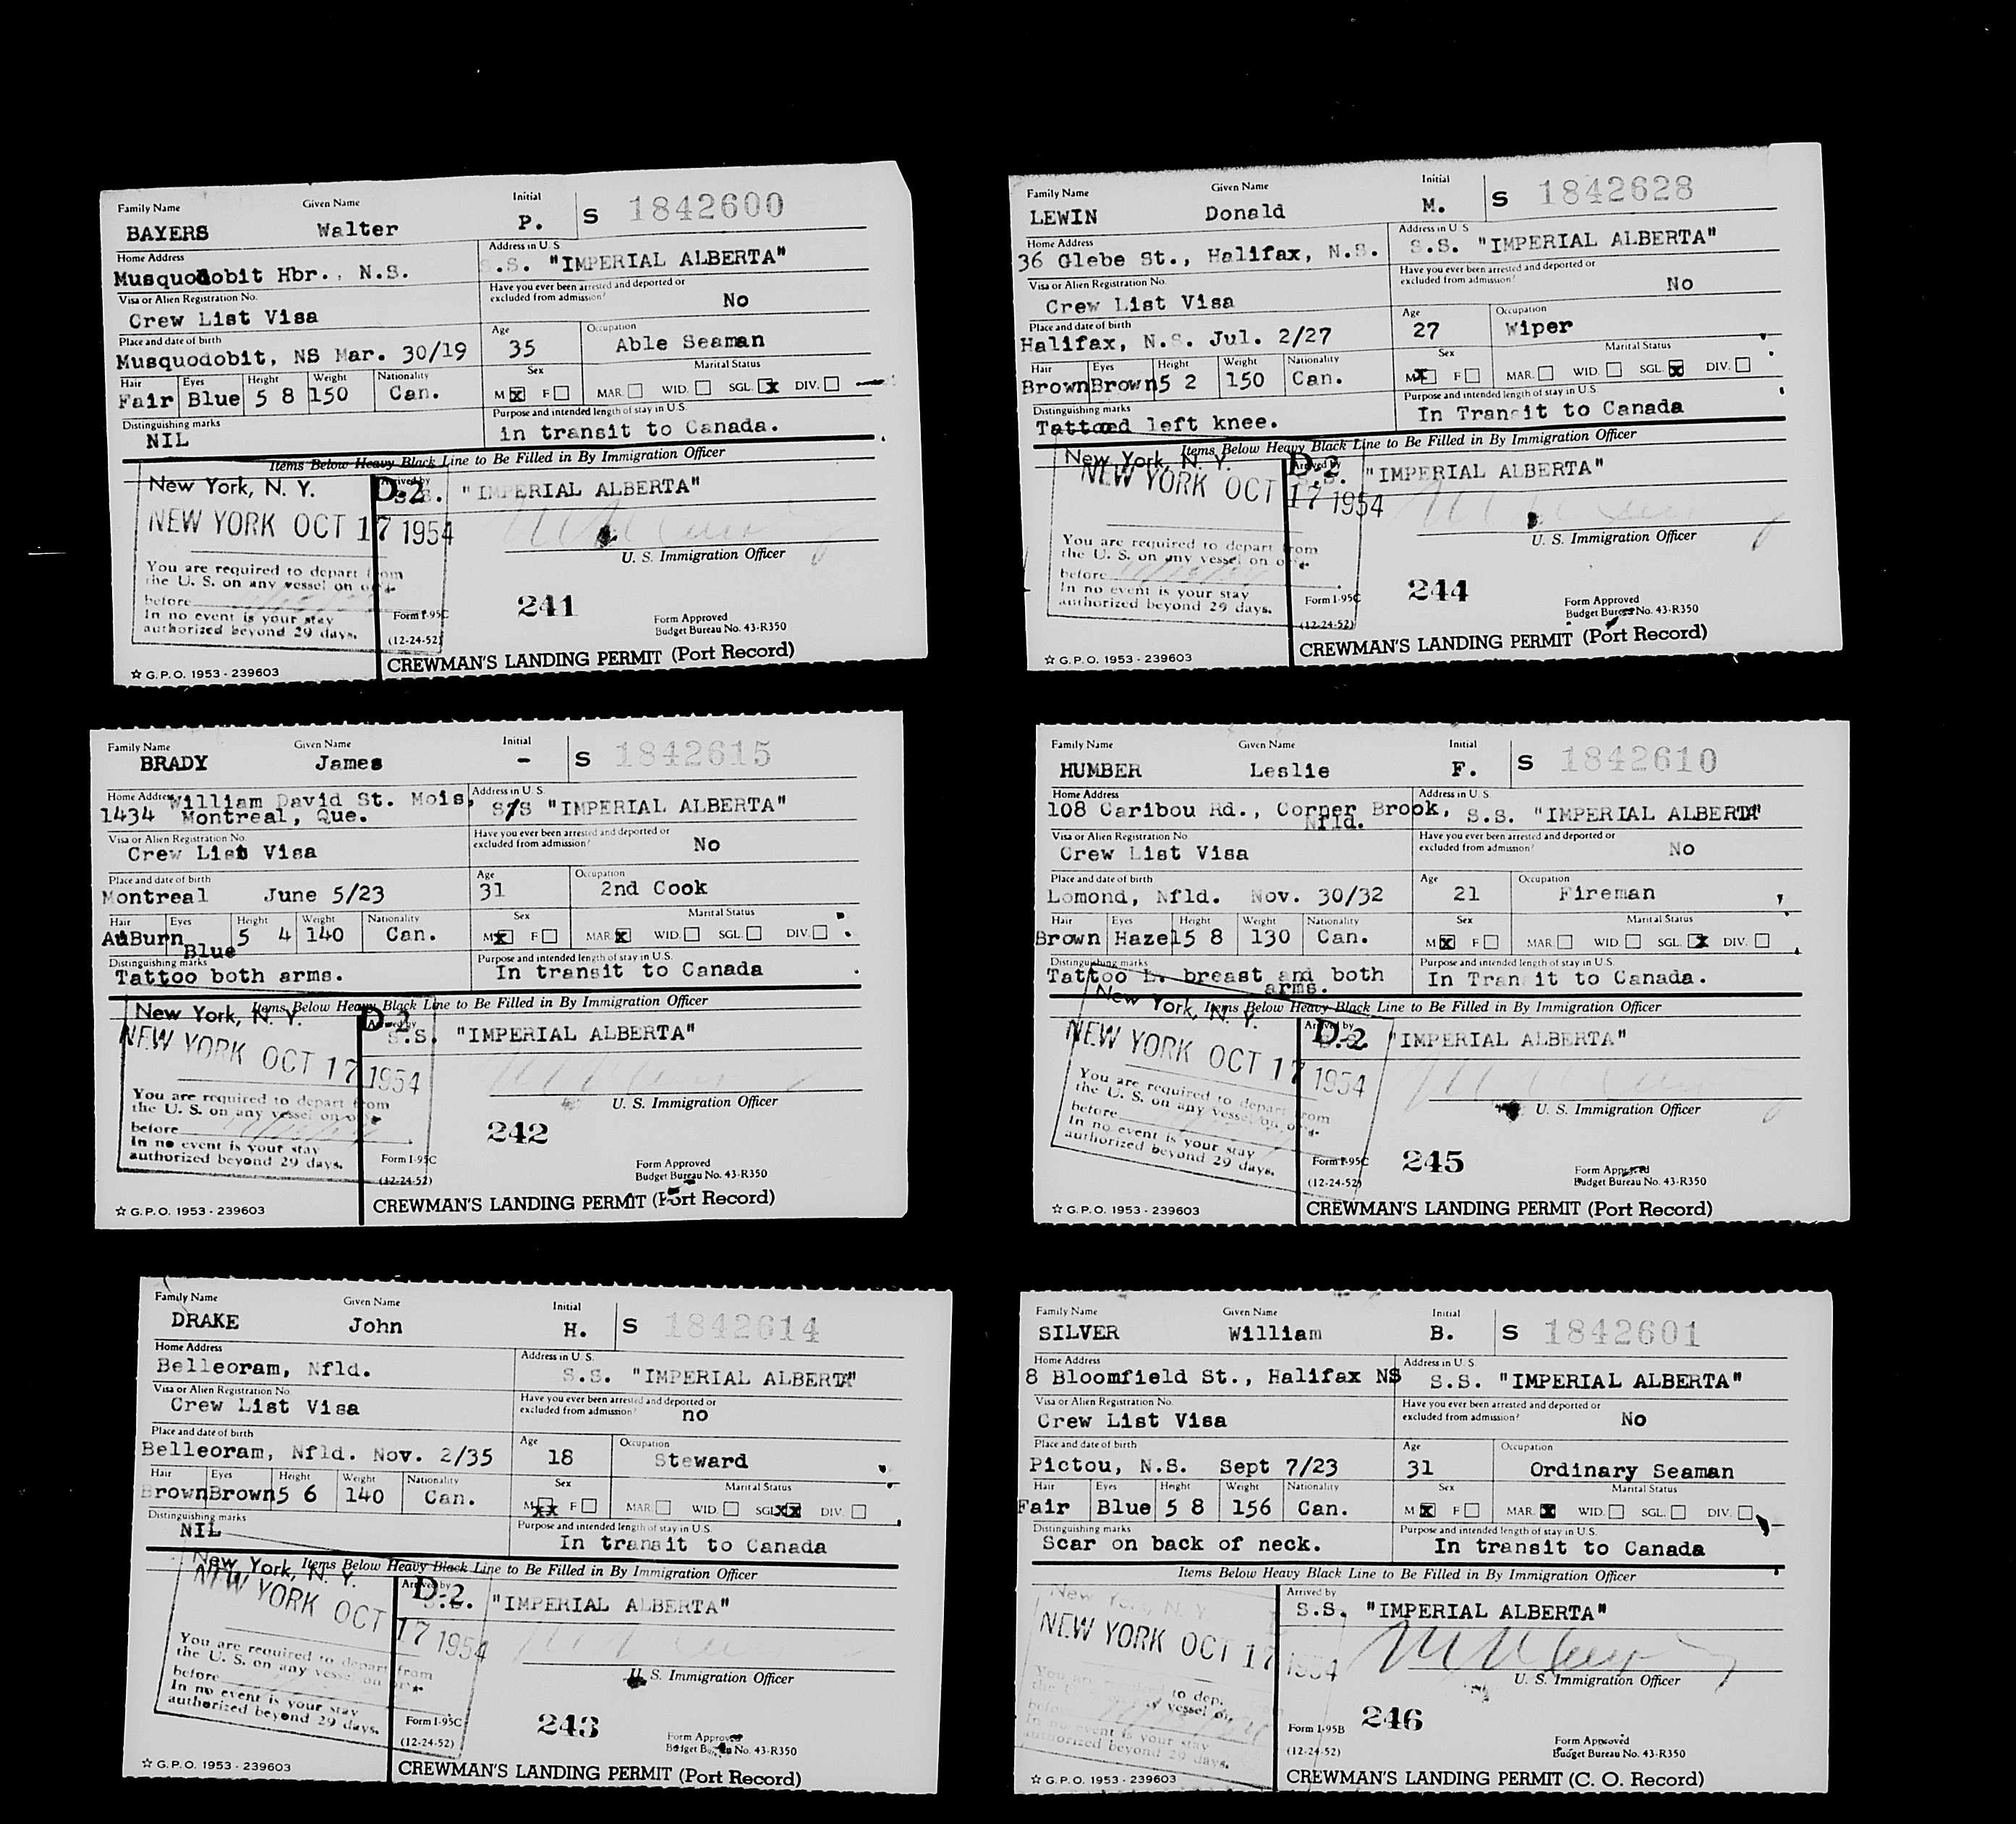 Family Name Given Name Initial S 1842600
BAYERS Walter P.
Home Address Address in U.S.
Musquodobit Hbr., N.S. S.S. "IMPERIAL ALBERTA"
Visa or Alien Registration No. Have you ever been arrested and deported or excluded from admission?
Crew List Visa No
Place and date of birth Age Occupation
Musquodobit, NS Mar. 30/19 35 Able Seaman
Hair Eyes Height Weight Nationality Sex Marital Status
Fair Blue 5 8 150 Can. M X F MAR. WID. SGL. X DIV.
Distinguishing marks Purpose and intended length of stay in U.S.
NIL in transit to Canada.
Items Below Heavy Black Line to Be Filled in By Immigration Officer
New York, N. Y. D-2 Arrived by S.S. "IMPERIAL ALBERTA"
NEW YORK OCT 17 1954
U. S. Immigration Officer
You are required to depart from
the U. S. on any vessel on or
before
In no event is your stay
authorized beyond 29 days.
Form I-95C
(12-24-52)
241
Form Approved
Budget Bureau No. 43-R350
☆ G.P.O. 1953 - 239603 CREWMAN'S LANDING PERMIT (Port Record)
Family Name Given Name Initial S 1842628
LEWIN Donald M.
Home Address Address in U.S.
36 Glebe St., Halifax, N.S. S.S. "IMPERIAL ALBERTA"
Visa or Alien Registration No. Have you ever been arrested and deported or excluded from admission?
Crew List Visa No
Place and date of birth Age Occupation
Halifax, N.S. Jul. 2/27 27 Wiper
Hair Eyes Height Weight Nationality Sex Marital Status
Brown Brown 5 2 150 Can. M X F MAR. WID. SGL. X DIV.
Distinguishing marks Purpose and intended length of stay in U.S.
Tattoed left knee. In Transit to Canada
Items Below Heavy Black Line to Be Filled in By Immigration Officer
New York, N. Y. D-2 Arrived by S.S. "IMPERIAL ALBERTA"
NEW YORK OCT 17 1954
U. S. Immigration Officer
You are required to depart from
the U. S. on any vessel on or
before
In no event is your stay
authorized beyond 29 days.
Form I-95C
(12-24-52)
244
Form Approved
Budget Bureau No. 43-R350
☆ G.P.O. 1953 - 239603 CREWMAN'S LANDING PERMIT (Port Record)
Family Name Given Name Initial S 1842615
BRADY James -
Home Address Address in U.S.
1434 William David St. Mois, S/S "IMPERIAL ALBERTA"
Montreal, Que.
Visa or Alien Registration No. Have you ever been arrested and deported or excluded from admission?
Crew List Visa No
Place and date of birth Age Occupation
Montreal June 5/23 31 2nd Cook
Hair Eyes Height Weight Nationality Sex Marital Status
AuBurn Blue 5 4 140 Can. M X F MAR. X WID. SGL. DIV.
Distinguishing marks Purpose and intended length of stay in U.S.
Tattoo both arms. In transit to Canada
Items Below Heavy Black Line to Be Filled in By Immigration Officer
New York, N. Y. D-2 Arrived by S.S. "IMPERIAL ALBERTA"
NEW YORK OCT 17 1954
U. S. Immigration Officer
You are required to depart from
the U. S. on any vessel on or
before
In no event is your stay
authorized beyond 29 days.
Form I-95C
(12-24-52)
242
Form Approved
Budget Bureau No. 43-R350
☆ G.P.O. 1953 - 239603 CREWMAN'S LANDING PERMIT (Port Record)
Family Name Given Name Initial S 1842610
HUMBER Leslie F.
Home Address Address in U.S.
108 Caribou Rd., Corner Brook, S.S. "IMPERIAL ALBERTA"
Nfld.
Visa or Alien Registration No Have you ever been arrested and deported or excluded from admission?
Crew List Visa No
Place and date of birth Age Occupation
Lomond, Nfld. Nov. 30/32 21 Fireman
Hair Eyes Height Weight Nationality Sex Marital Status
Brown Hazel 5 8 130 Can. M X F MAR. WID. SGL. X DIV.
Distinguishing marks Purpose and intended length of stay in U.S.
Tattoo L. breast and both In Transit to Canada.
arms.
Items Below Heavy Black Line to Be Filled in By Immigration Officer
New York, N. Y. D-2 Arrived by "IMPERIAL ALBERTA"
NEW YORK OCT 17 1954
U. S. Immigration Officer
You are required to depart from
the U. S. on any vessel on or
before
In no event is your stay
authorized beyond 29 days.
Form I-95C
(12-24-52)
245
Form Approved
Budget Bureau No. 43-R350
☆ G.P.O. 1953 - 239603 CREWMAN'S LANDING PERMIT (Port Record)
Family Name Given Name Initial S 1842614
DRAKE John H.
Home Address Address in U.S.
Belleoram, Nfld. S.S. "IMPERIAL ALBERTA"
Visa or Alien Registration No. Have you ever been arrested and deported or excluded from admission?
Crew List Visa no
Place and date of birth Age Occupation
Belleoram, Nfld. Nov. 2/35 18 Steward
Hair Eyes Height Weight Nationality Sex Marital Status
Brown Brown 5 6 140 Can. M XX F MAR. WID. SGL. XX DIV.
Distinguishing marks Purpose and intended length of stay in U.S.
NIL In transit to Canada
Items Below Heavy Black Line to Be Filled in By Immigration Officer
New York, N. Y. D-2 Arrived by S.S. "IMPERIAL ALBERTA"
NEW YORK OCT 17 1954
U. S. Immigration Officer
You are required to depart from
the U. S. on any vessel on or
before
In no event is your stay
authorized beyond 29 days.
Form I-95C
(12-24-52)
243
Form Approved
Budget Bureau No. 43-R350
☆ G.P.O. 1953 - 239603 CREWMAN'S LANDING PERMIT (Port Record)
Family Name Given Name Initial S 1842601
SILVER William B.
Home Address Address in U.S.
8 Bloomfield St., Halifax NS S.S. "IMPERIAL ALBERTA"
Visa or Alien Registration No. Have you ever been arrested and deported or excluded from admission?
Crew List Visa No
Place and date of birth Age Occupation
Pictou, N.S. Sept 7/23 31 Ordinary Seaman
Hair Eyes Height Weight Nationality Sex Marital Status
Fair Blue 5 8 156 Can. M X F MAR. X WID. SGL. DIV.
Distinguishing marks Purpose and intended length of stay in U.S.
Scar on back of neck. In transit to Canada
Items Below Heavy Black Line to Be Filled in By Immigration Officer
New York, N. Y. Arrived by S.S. "IMPERIAL ALBERTA"
NEW YORK OCT 17 1954
U. S. Immigration Officer
You are required to dep.
vessel on
before
In no event is your stay
authorized beyond 29 days.
Form I-95B
(12-24-52)
246
Form Approved
Budget Bureau No. 43-R350
☆ G.P.O. 1953 - 239603 CREWMAN'S LANDING PERMIT (C. O. Record)